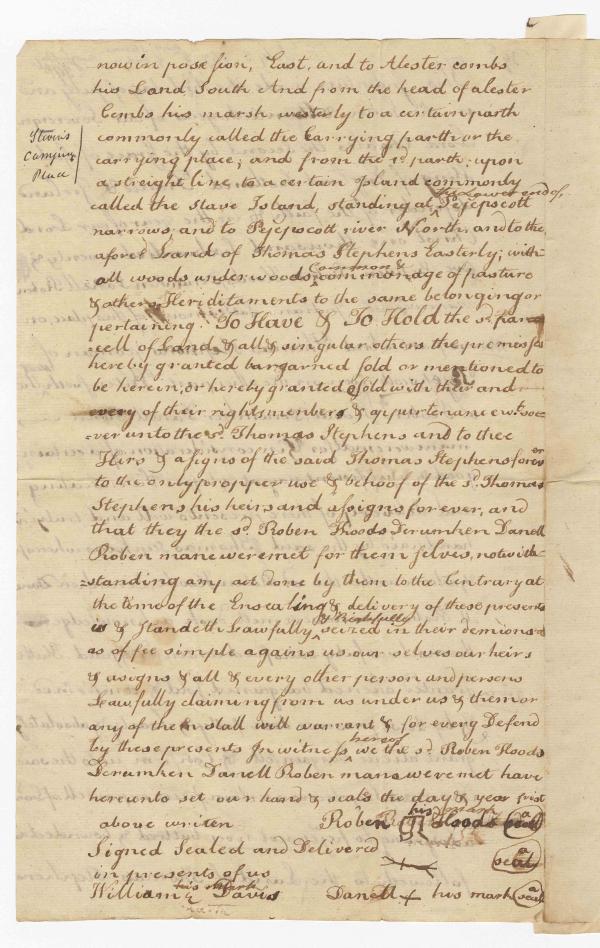 now in posesion, East, and to Alester combs
his Land South And from the head of alester
Combs his marsh westerly to a certain parth
Steven's
Carrying
Place
commonly called the Carrying parth or the
carrying place; and from the sd. parth; upon
a streight line to a certain Island commonly
the Lower end of
called the Slave Island, standing at Pejepscott
narrows; and to Pejepscott river North, and to the
afores Land of Thomas Stephens Easterly; with
all woods underwoods Common & commonage of pasture
& others Heriditaments to the same belonging or
pertaining: To Have & To Hold the sd. par
=cell of Land, & all & singular others the premises
hereby granted bargarned sold or mentioned to
be herein, or hereby granted & sold with their and
every of their rights menbers & appurtenance wt. soe=
=ver unto the sd. Thomas Stephens and to thee
Heirs & asigns of the said Thomas Stephens forever
to the only propper use & behoof of the sd. Thomas
Stephens his heirs and assigns for ever, and
that they the sd. Roben Hoods Derumken Danell
Roben mane weremet for them selves, notwith=
=standing any act done by them to the Contrary at
the time of the Ensealing & delivery of these presents
is & standeth Lawfully & Rightfully seized in their demions
as of fee simple agains us our selves our heirs
& asigns & all & every other person and persons
Lawfully claiming from us under us & them or
any of them stall will warrant & for every Defend
by these presents In witness hereof we the sd. Roben Hoods
Derumken Danell Roben mans weremet have
hereunto set our hand & seals the day & year frist
above writen Roben his mark Hoods a seal
Signed Sealed and Delivered a seal
in presents of us
William his mark Davis Danell + his mark a seal